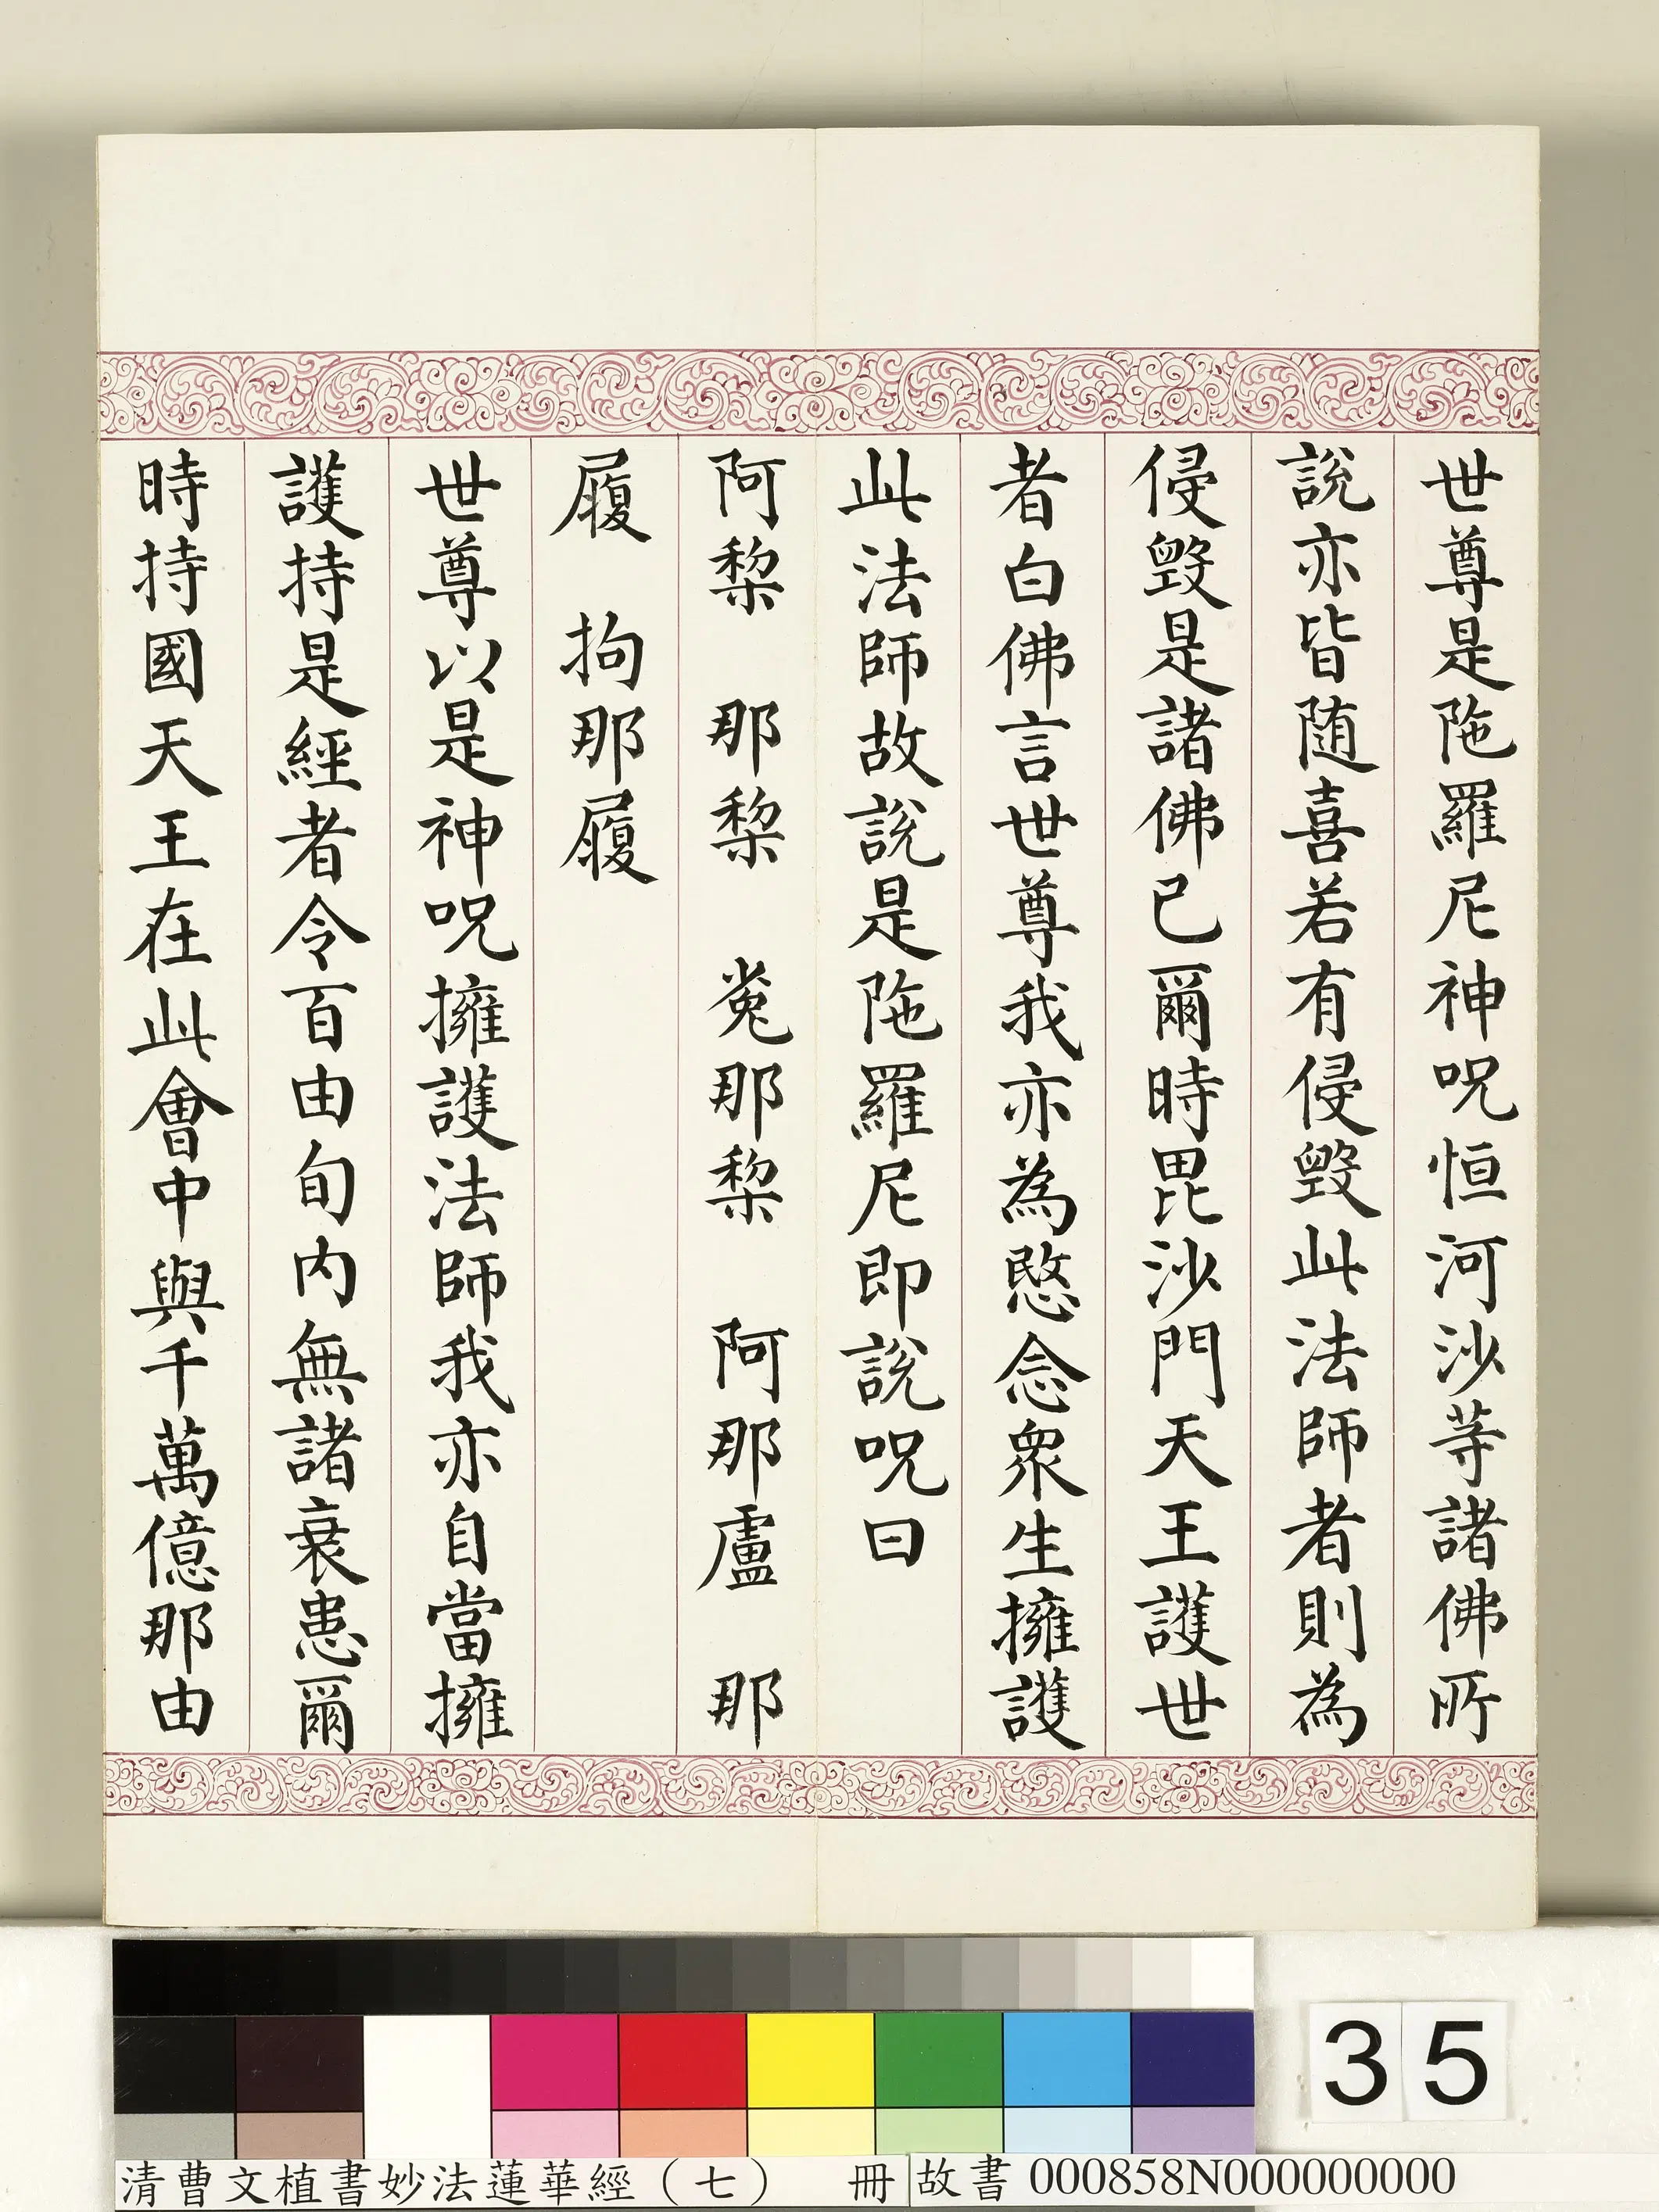 世尊是陁羅尼神呪恒河沙等諸佛所
說亦皆随喜若有侵毀此法師者則為
侵毀是諸佛已爾時毘沙門天王護世
者白佛言世尊我亦為愍念衆生擁護
此法師故說是陁羅尼即說呪曰
阿梨　那梨　㝹那梨　阿那盧　那
履　拘那履
世尊以是神呪擁護法師我亦自當擁
護持是經者令百由旬內無諸衰患爾
時持國天王在此會中與千萬億那由
35
清曹文植書妙法蓮華經（七）　冊 故書 000858N000000000